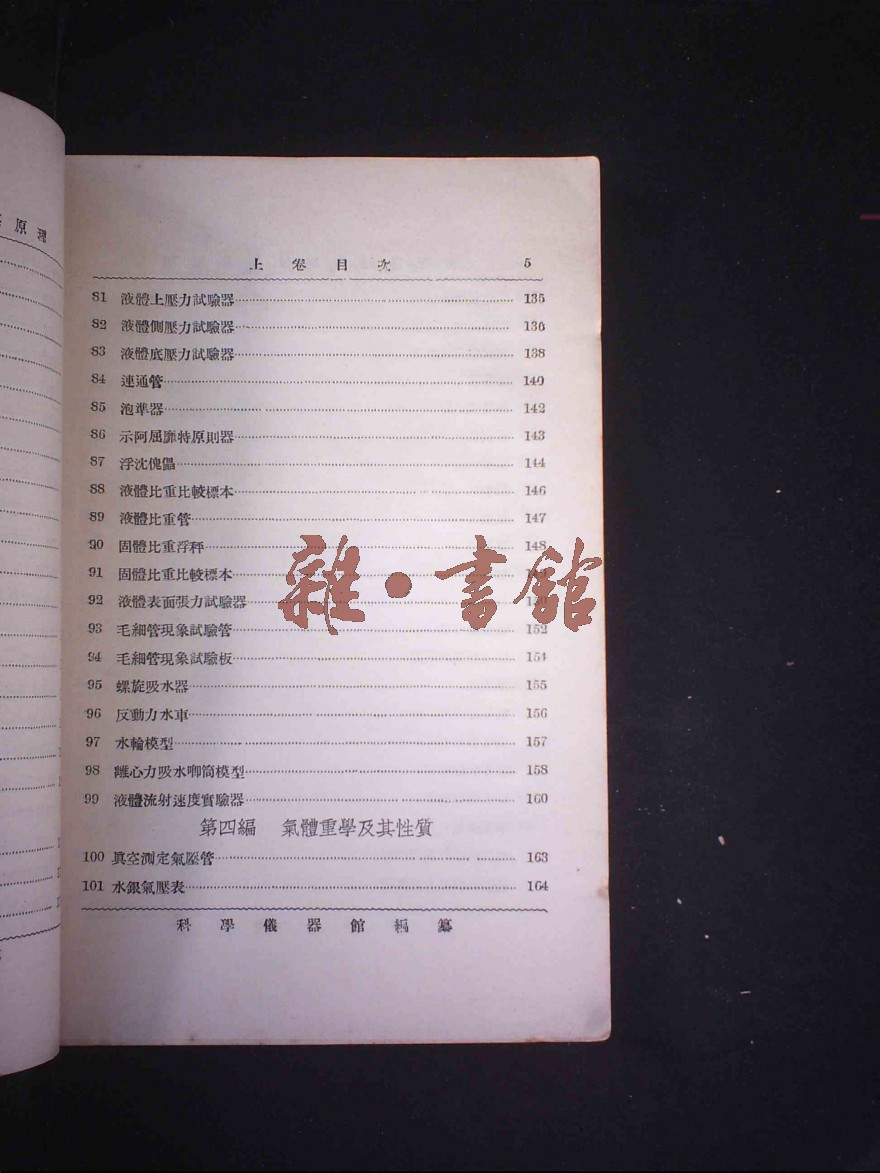 原理
上卷目次 5
81 液體上壓力試驗器 135
82 液體側壓力試驗器 136
83 液體底壓力試驗器 138
84 連通管 140
85 泡準器 142
86 示阿屈靡特原則器 143
87 浮沈傀儡 144
88 液體比重比較標本 146
89 液體比重管 147
90 固體比重浮秤 148
91 固體比重比較標本
92 液體表面張力試驗器
93 毛細管現象試驗管 152
94 毛細管現象試驗板 154
95 螺旋吸水器 155
96 反動力水車 156
97 水輪模型 157
98 離心力吸水唧筒模型 158
99 液體流射速度實驗器 160
第四編 氣體重學及其性質
100 眞空測定氣壓管 163
101 水銀氣壓表 164
科學儀器館編纂
雜·書館